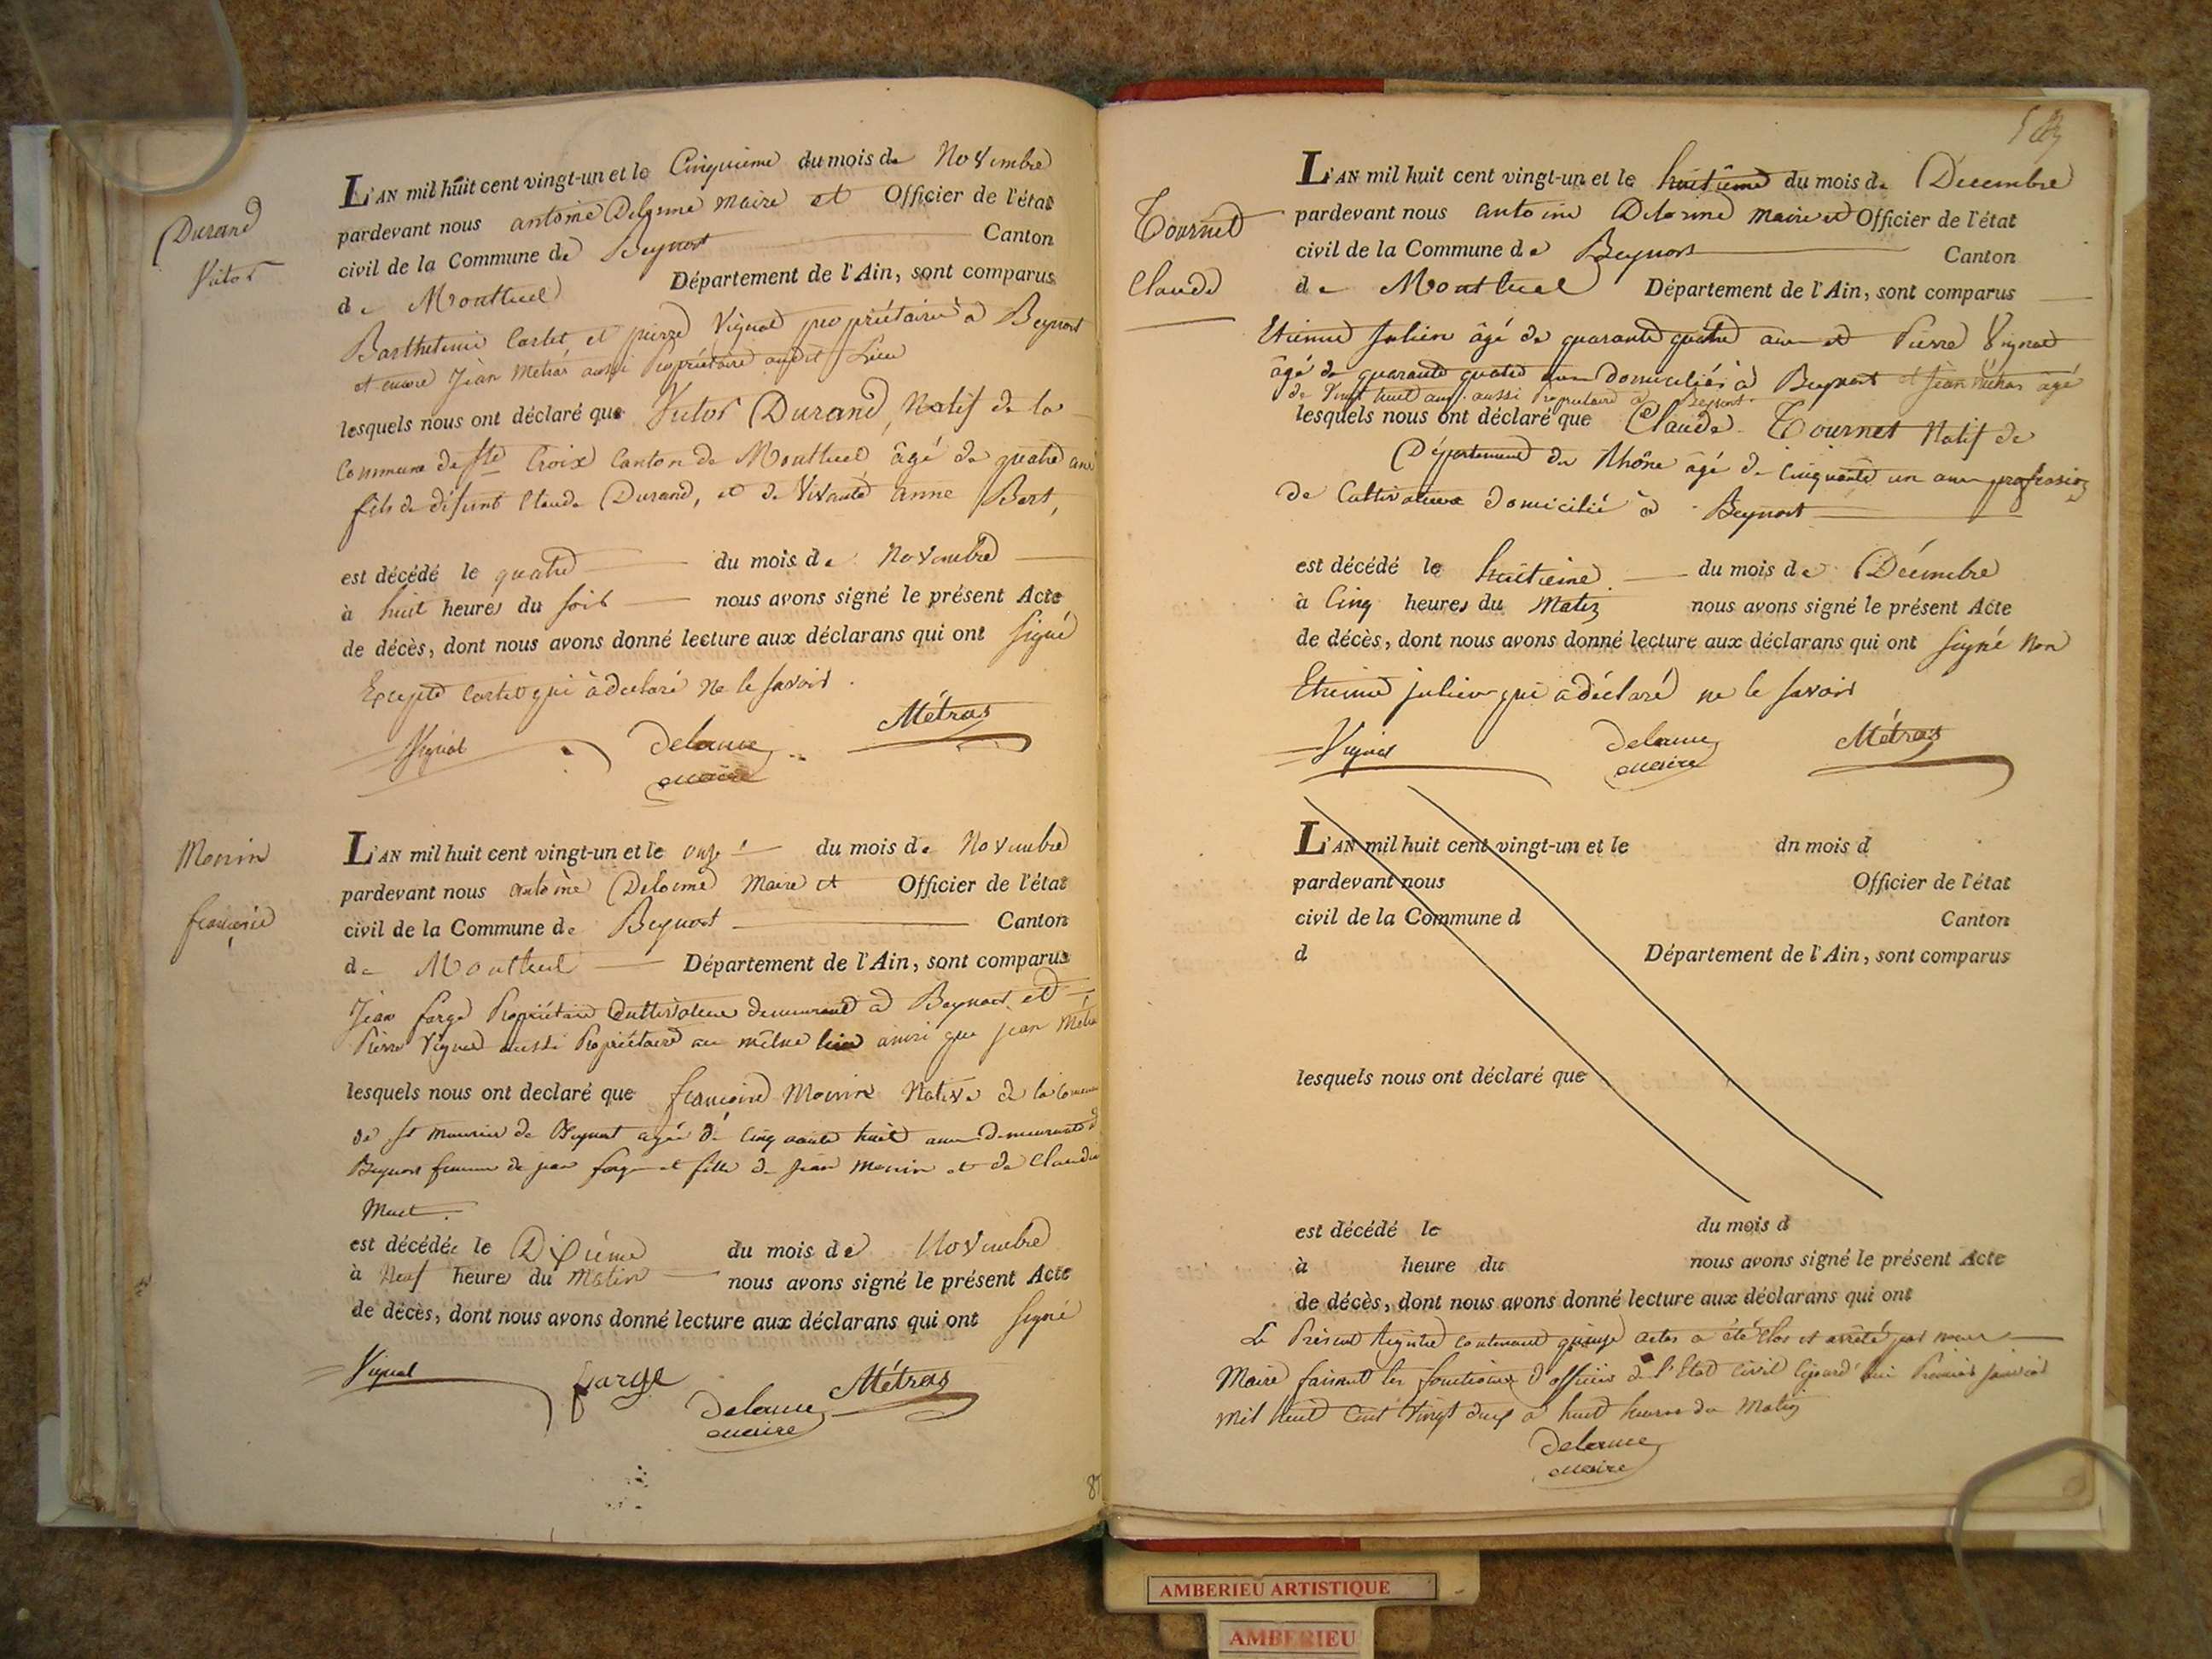 Durand
Victor
L'AN mil huit cent vingt-un et le Cinquieme du mois de Novembre
pardevant nous antoine Delorme maire et Officier de l'état
civil de la Commune de Beynost Canton
de Montluel Département de l'Ain, sont comparus
Barthelemie Cartet et pierre Vignat propriétaire à Beynost
et encore Jean Metras aussi Propriétaire audit Lieu
lesquels nous ont déclaré que Victor Durand, Natif de la
Commune de Ste Croix Canton de Montluel âgé de quatre ans
fils de défunt Claude Durand, et de Vivante anne Bert,
est décédé le quatre du mois de Novembre
à huit heures du soir nous avons signé le présent Acte
de décès, dont nous avons donné lecture aux déclarans qui ont signé
Excepté Cartet qui à déclaré ne le savoir.
Vignat Delorme Métras
maire
Monin
françoise
L'AN mil huit cent vingt-un et le onze du mois de Novembre
pardevant nous antoine Delorme Maire et Officier de l'état
civil de la Commune de Beynost Canton
de Montluel Département de l'Ain, sont comparus
Jean farge Propriétaire Cultivateur demeurant à Beynost et
Pierre Vignat aussi Propriétaire au même lieu ainsi que jean Métras
lesquels nous ont declaré que françoise Monin Native de la Commune
de St maurice de Beynost agée de cinquante huit ans demeurante à
Beynost femme de jean farge et fille de Jean Monin et de Claudine
est décédée le Dixième du mois de Novembre
à Neuf heures du Matin nous avons signé le présent Acte
de décès, dont nous avons donné lecture aux déclarans qui ont signé
Vignat farge Métras
Delorme
maire
87
Tournet
Claude
L'AN mil huit cent vingt-un et le huitième du mois de Décembre
pardevant nous antoine Delorme maire et Officier de l'état
civil de la Commune de Beynost Canton
de Montluel Département de l'Ain, sont comparus
Etienne Julien âgé de quarante quatre ans et Pierre Vignat
âgé de quarante quatre ans domiciliés à Beynost et Jean Métras âgé
de Vingt huit ans aussi Propriétaire à Beynost
lesquels nous ont déclaré que Claude Tournet Natif de
Département du Rhône âgé de cinquante un ans profession
de Cultivateur domicilié à Beynost
est décédé le huitieme du mois de Décembre
à Cinq heures du Matin nous avons signé le présent Acte
de décès, dont nous avons donné lecture aux déclarans qui ont signé Non
Etienne julien qui a déclaré ne le savoir
Vignat Delorme Métras
maire
L'AN mil huit cent vingt-un et le dn mois d
pardevant nous Officier de l'état
civil de la Commune d Canton
d Département de l'Ain, sont comparus
lesquels nous ont déclaré que
est décédé le du mois d
à heure du nous avons signé le présent Acte
de décès, dont nous avons donné lecture aux déclarans qui ont
Le Présent Registre contenant quinze actes a été Clos et arrêté par nous
Maire faisant les fonctions d'officier de l'Etat civil Cejourd'hui Premier janvier
Mil huit Cent Vingt deux à huit heures du Matin
Delorme
maire
AMBERIEU ARTISTIQUE
AMBERIEU